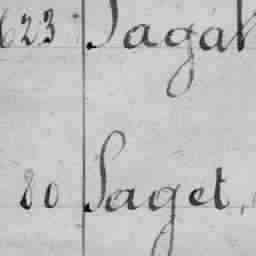 23 Sagal
80 Saget,